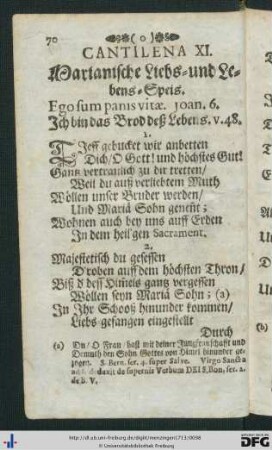 70 ( o )
CANTILENA XI.
Marianische Liebs-und Le-
bens-Speis.
Ego sum panis vitæ. Joan. 6.
Ich bin das Brod deß Lebens. v. 48.
1.
Tieff gebucket wir anbetten
Dich/ O Gott! und höchstes Gut!
Gantz vertraulich zu dir tretten/
Weil du auß verliebtem Muth
Wöllen unser Bruder werden/
Und Mariä Sohn genent;
Wohnen auch bey uns auff Erden
In dem heil'gen Sacrament.
2.
Majestetisch du gesessen
Droben auff dem höchsten Thron/
Biß deß Him̃els gantz vergessen
Wöllen seyn Mariä Sohn; (a)
In Ihr Schooß hinunder kommen/
Liebs-gefangen eingestellt
Durch
(a) Du/ O Frau/ hast mit deiner Jungfrauschaft und
Demuth den Sohn Gottes vom Himel hinunder ge-
zogen. S. Bern. ser. 4. super Salve. Virgo Sancta
de supernis Verbum DEI S. Bon. ser. 2.
de B. V.
(b)
http://dl.ub.uni-freiburg.de/diglit/menzingen1713/0098
Universitätsbibliothek Freiburg